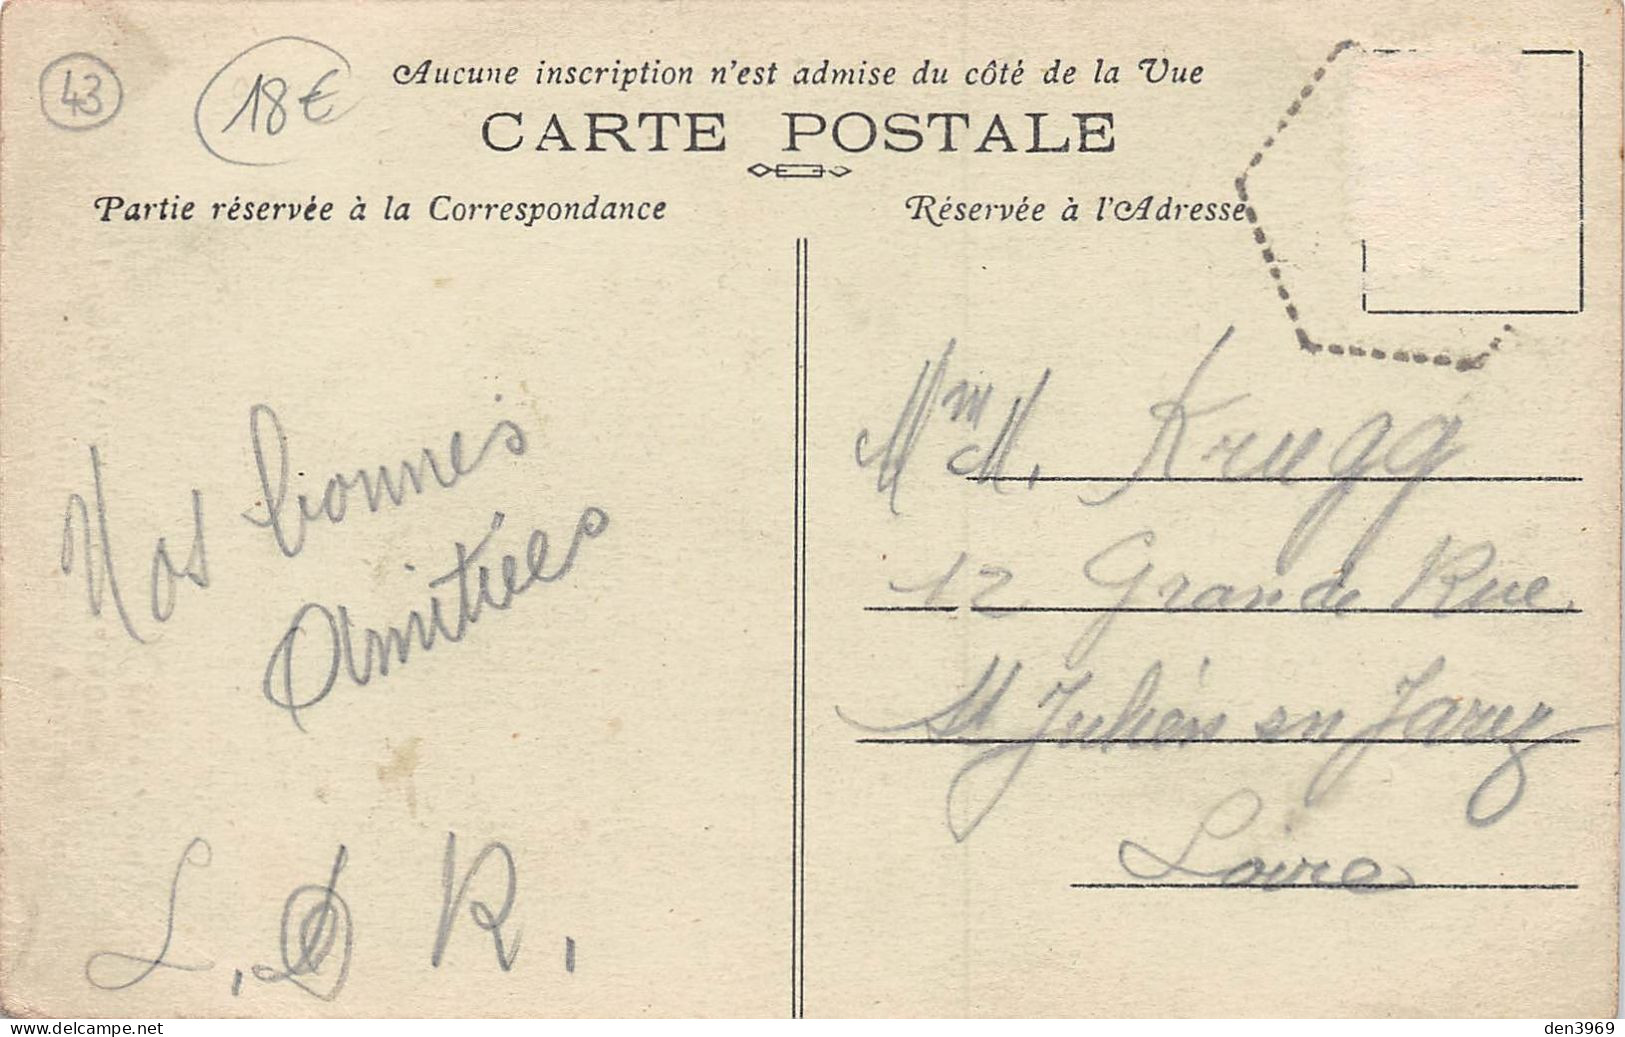 43
18€
Aucune inscription n'est admise du côté de la Vue
CARTE POSTALE
Partie réservée à la Correspondance
Réservée à l'Adresse
Nos bonnes
Amitiées
L. D R.
Mm M. Krugg
12 Grande Rue.
St Julien en Jarez
Loire
www.delcampe.net
den3969